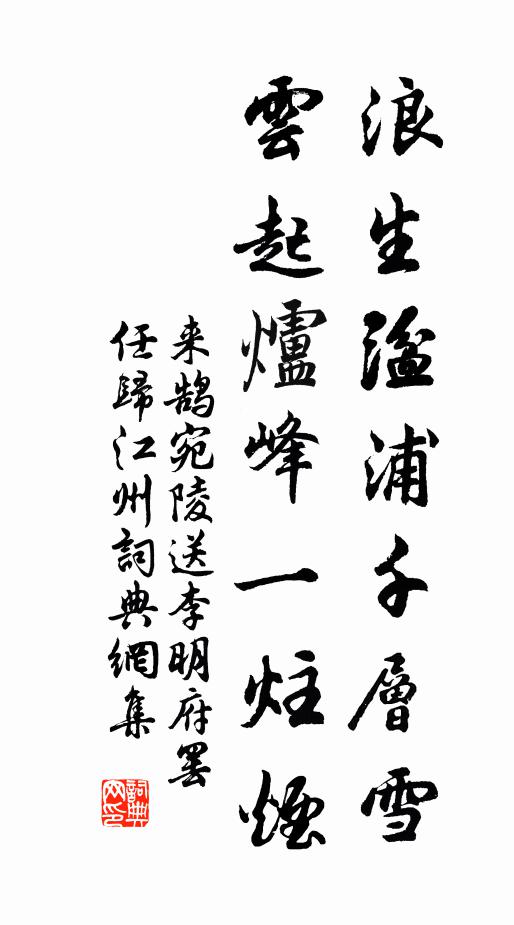 浪生湓浦千層雪
雲起爐峰一炷煙
来鹄宛陵送李明府罢
任歸江州詞典網集
詞典
网印